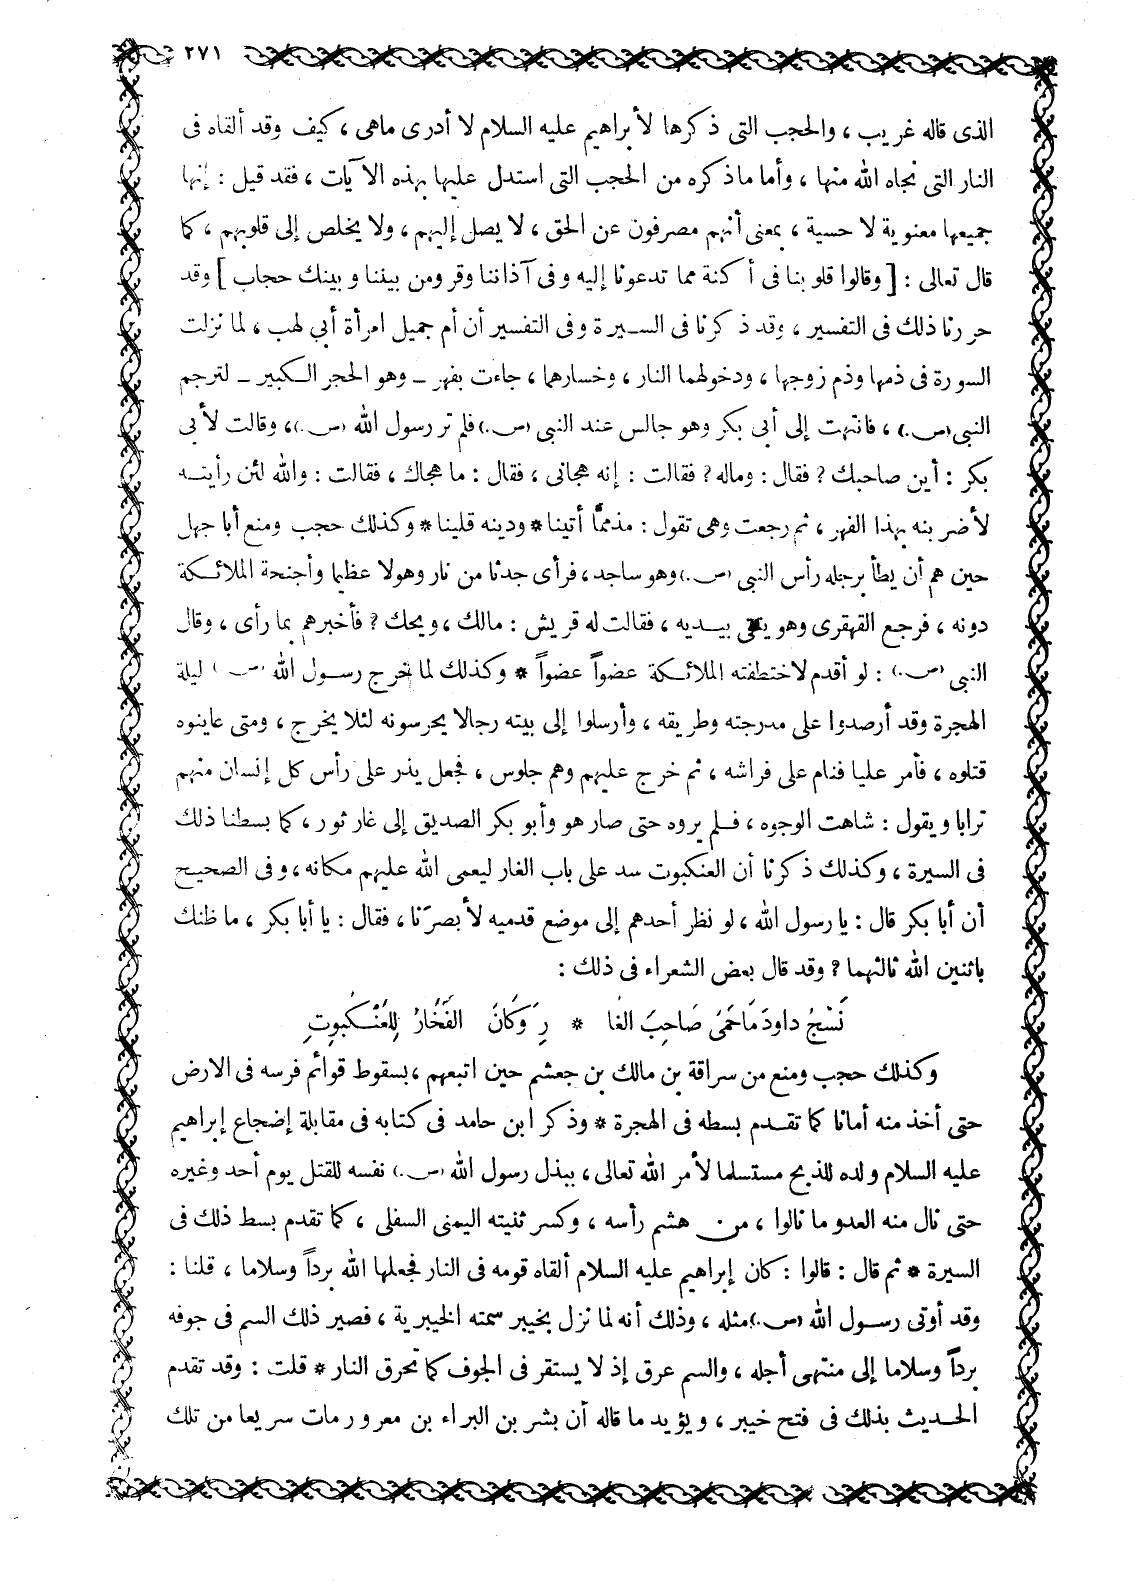 ٢٧١
الذى قاله غريب ، والحجب التى ذكرها لأبراهيم عليه السلام لا أدرى ماهى ، كيف وقد ألقاه فى
النار التى نجاه الله منها ، وأما ماذكره من الحجب التى استدل عليها بهذه الآيات ، فقد قيل : إنها
جميعها معنوية لا حسية ، بمعنى أنهم مصرفون عن الحق ، لا يصل إليهم ، ولا يخلص إلى قلوبهم ، كما
قال تعالى : [ وقالوا قلوبنا فى أكنة مما تدعونا إليه وفى آذاننا وقر ومن بيننا وبينك حجاب ] وقد
حررنا ذلك فى التفسير ، وقد ذكرنا فى السيرة وفى التفسير أن أم جميل امرأة أبي لهب ، لما نزلت
السورة فى ذمها وذم زوجها ، ودخولهما النار ، وخسارهما ، جاءت بفهر ــ وهو الحجر الكبير ــ لترجم
النبى (ص.) ، فانتهت إلى أبى بكر وهو جالس عند النبى (ص.) فلم تر رسول الله (ص.)، وقالت لأبى
بكر : أين صاحبك ? فقال : وماله ? فقالت : إنه هجانى ، فقال : ما هجاك ، فقالت : والله لئن رأيته
لأضربنه بهذا الفهر ، ثم رجعت وهى تقول : مذمماً أتينا * ودينه قلينا * وكذلك حجب ومنع أبا جهل
حين هم أن يطأ برجله رأس النبى (ص.) وهو ساجد ، فرأى جدثا من نار وهولا عظيما وأجنحة الملائكة
دونه ، فرجع القهقرى وهو يتقى بيديه ، فقالت له قريش : مالك ، ويحك ? فأخبرهم بما رأى ، وقال
النبى (ص.) : لو أقدم لاختطفته الملائكة عضواً عضواً * وكذلك لما خرج رسول الله (ص.) ليلة
الهجرة وقد أرصدوا على مدرجته وطريقه ، وأرسلوا إلى بيته رجالا يحرسونه لئلا يخرج ، ومتى عاينوه
قتلوه ، فأمر عليا فنام على فراشه ، ثم خرج عليهم وهم جلوس ، فجعل يذر على رأس كل إنسان منهم
ترابا ويقول : شاهت الوجوه ، فلم يروه حتى صار هو وأبو بكر الصديق إلى غار ثور ، كما بسطنا ذلك
فى السيرة ، وكذلك ذكرنا أن العنكبوت سد على باب الغار ليعمى الله عليهم مكانه ، وفى الصحيح
أن أبا بكر قال : يا رسول الله ، لو نظر أحدهم إلى موضع قدميه لأبصرَنا ، فقال : يا أبا بكر ، ما ظنك
باثنين الله ثالثهما ? وقد قال بعض الشعراء فى ذلك :
نَسْجُ داودَ مَا حَمَىَ صَاحِبَ الغَا * رِ وَكَانَ الفَخَارُ لِلْعَنْكَبوتِ
وكذلك حجب ومنع من سراقة بن مالك بن جعشم حين اتبعهم ، بسقوط قوائم فرسه فى الارض
حتى أخذ منه أمانا كما تقدم بسطه فى الهجرة * وذكر ابن حامد فى كتابه فى مقابلة إضجاع إبراهيم
عليه السلام ولده للذبح مستسلما لأمر الله تعالى ، ببذل رسول الله (ص.) نفسه للقتل يوم أحد وغيره
حتى نال منه العدو ما نالوا ، من هشم رأسه ، وكسر ثنيته اليمنى السفلى ، كما تقدم بسط ذلك فى
السيرة * ثم قال : قالوا : كان إبراهيم عليه السلام ألقاه قومه فى النار فجعلها الله برداً وسلاما ، قلنا :
وقد أوتى رسول الله (ص.) مثله ، وذلك أنه لما نزل بخيبر سمته الخيبرية ، فصير ذلك السم فى جوفه
برداً وسلاما إلى منتهى أجله ، والسم عرق إذ لا يستقر فى الجوف كما تحرق النار * قلت : وقد تقدم
الحديث بذلك فى فتح خيبر ، ويؤيد ما قاله أن بشر بن البراء بن معرور مات سريعا من تلك